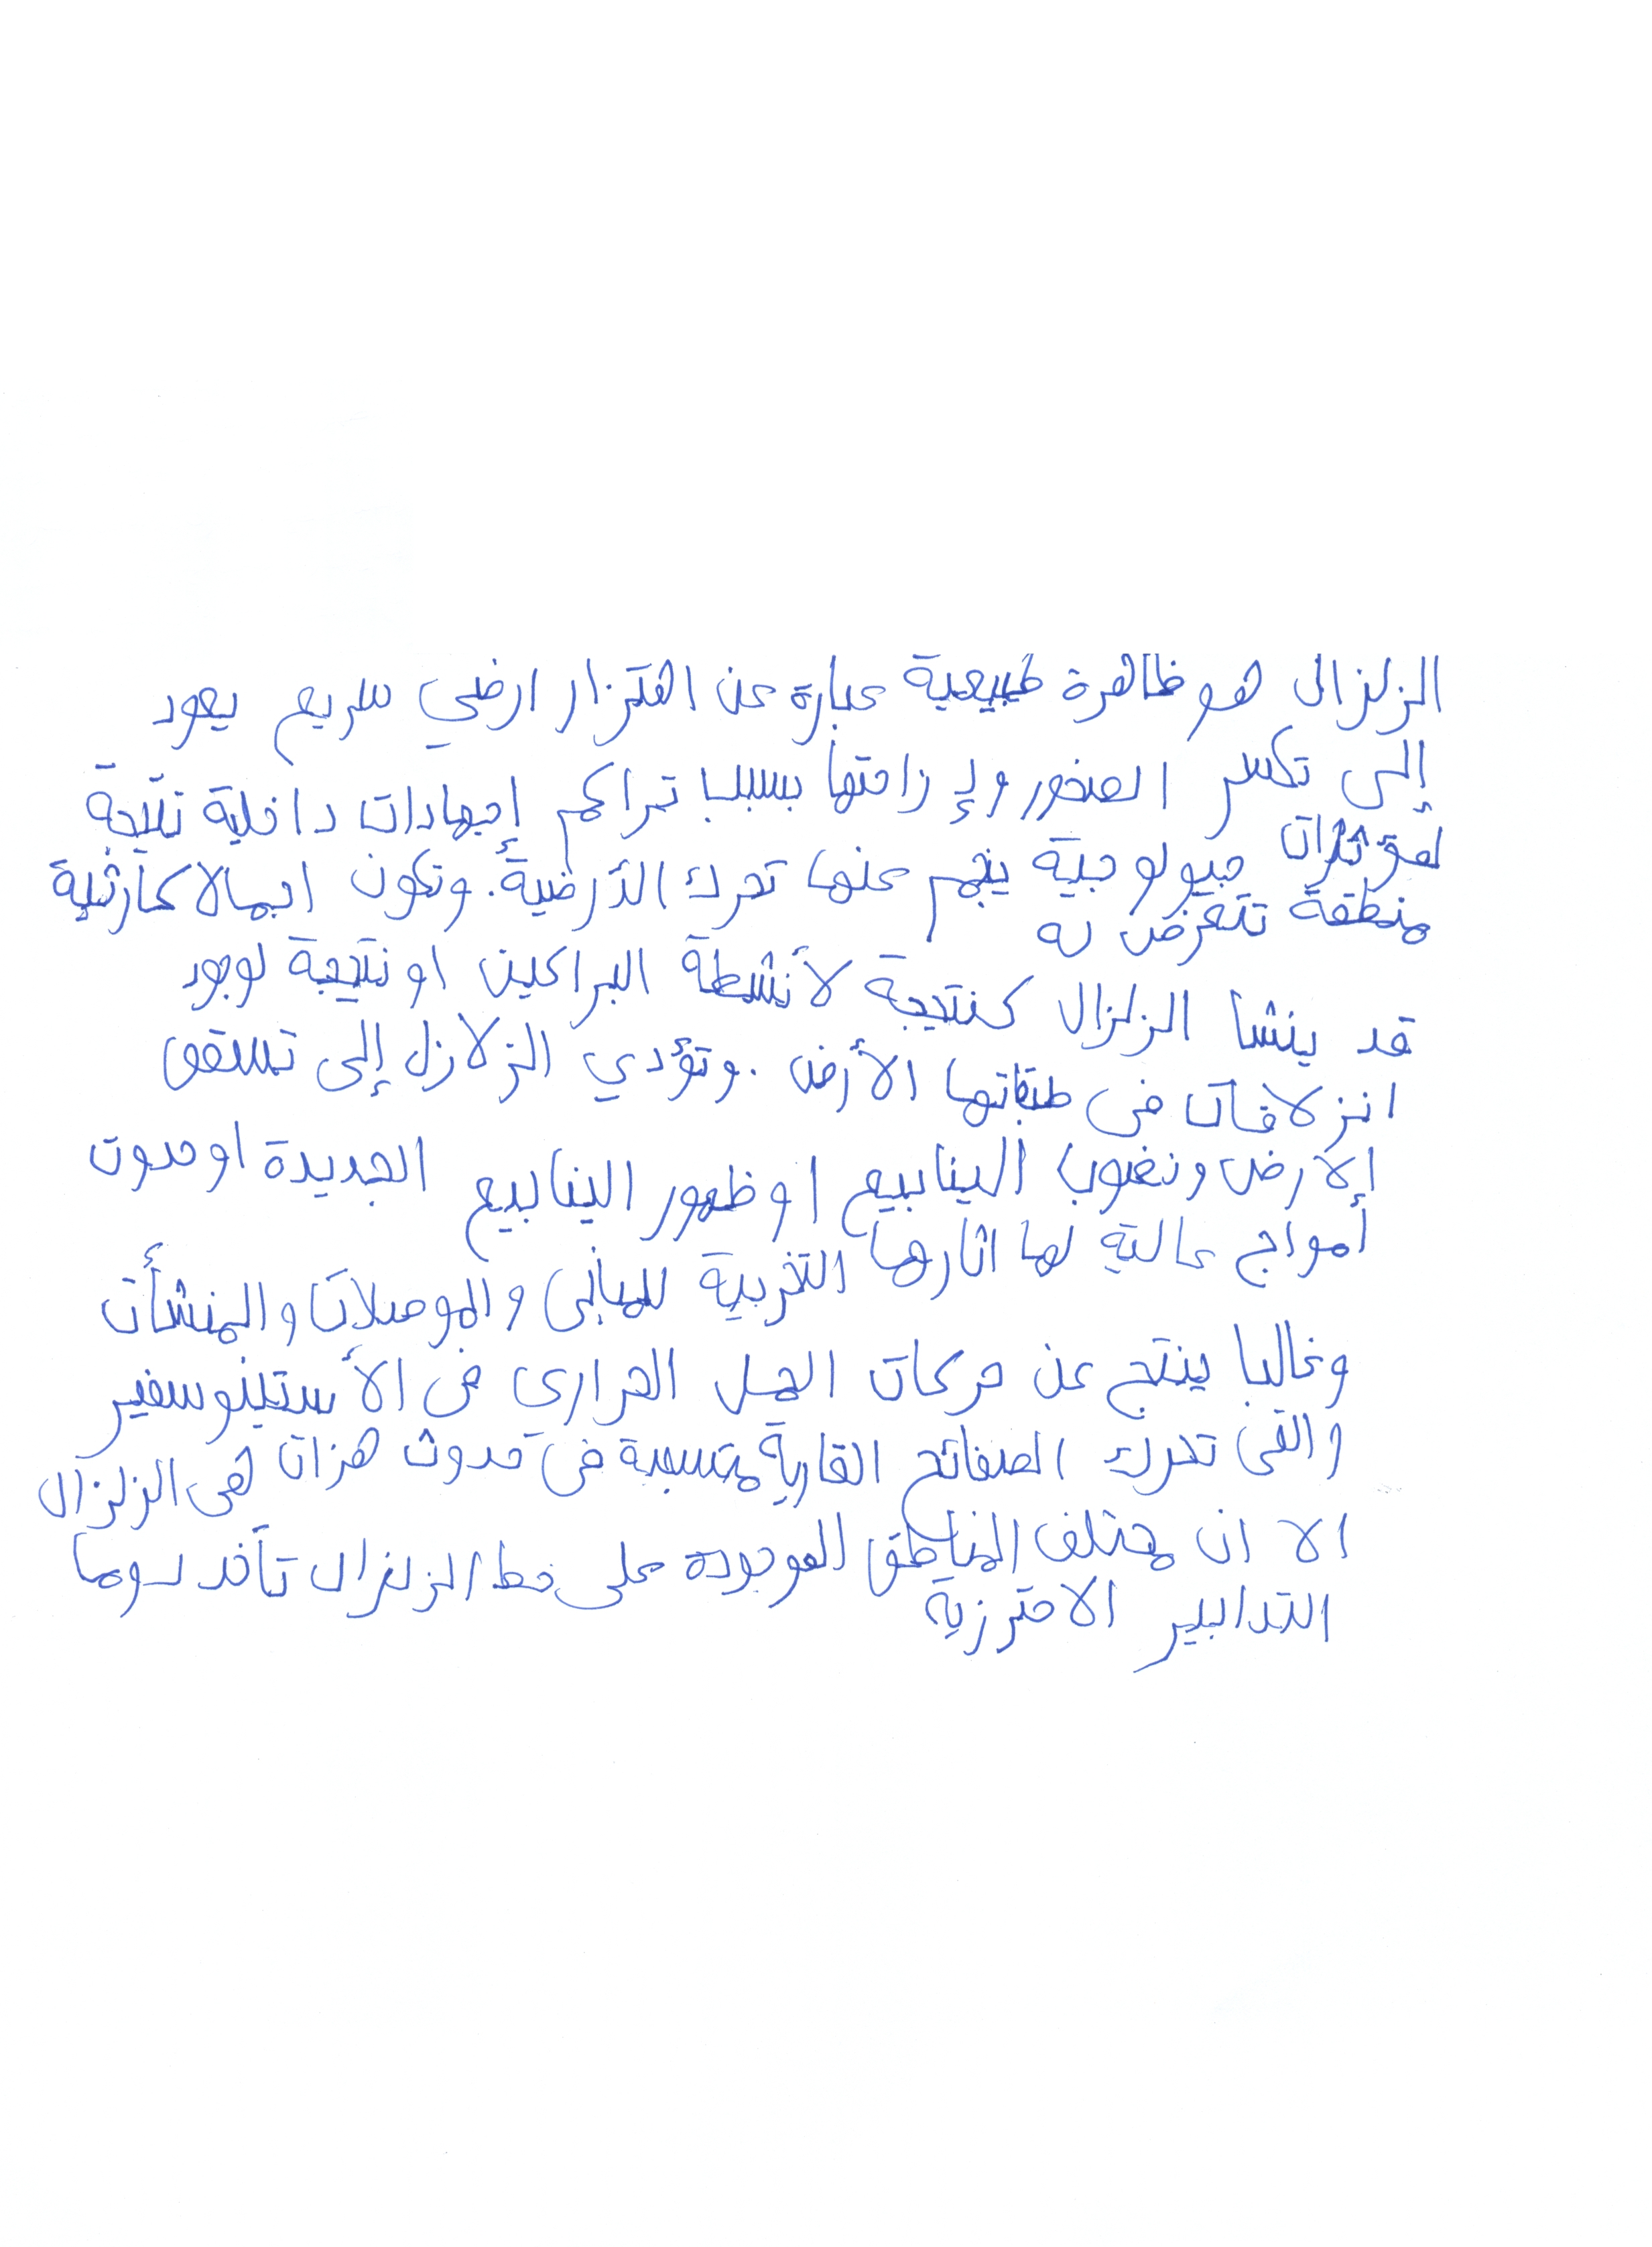 الزلزال هو ظاهرة طبيعية عبارة عن اهتزاز ارضي سريع يعود
إلى تكسر الصخور وإزاحتها بسبب تراكم إجهادات داخلية نتيجة
لمؤثرات جيولوجية ينجم عنها تحرك الأرضية. وتكون اجمالا كارثية
منطقة تتعرض له
قد ينشا الزلزال كنتيجة لأنشطة البراكين او نتيجة لوجود
انزلاقات في طبقاتها الأرض . وتؤدي الزلازل إلى تشقق
الارض ونضوب الينابيع او ظهور الينابيع الجديدة او حدوث
أمواج عالية لها اثارها التخريبية للمباني والموصلات والمنشأت
وغالبا ينتج عن حركات الحمل الحراري في الأستينوسفير
والتي تحرك الصفائح القارية متسببة في حدوث هزات هى الزلزال
الا ان مختلف المناطق الموجودة على خط الزلزال تأخد دوما
التدابير الاحترزية